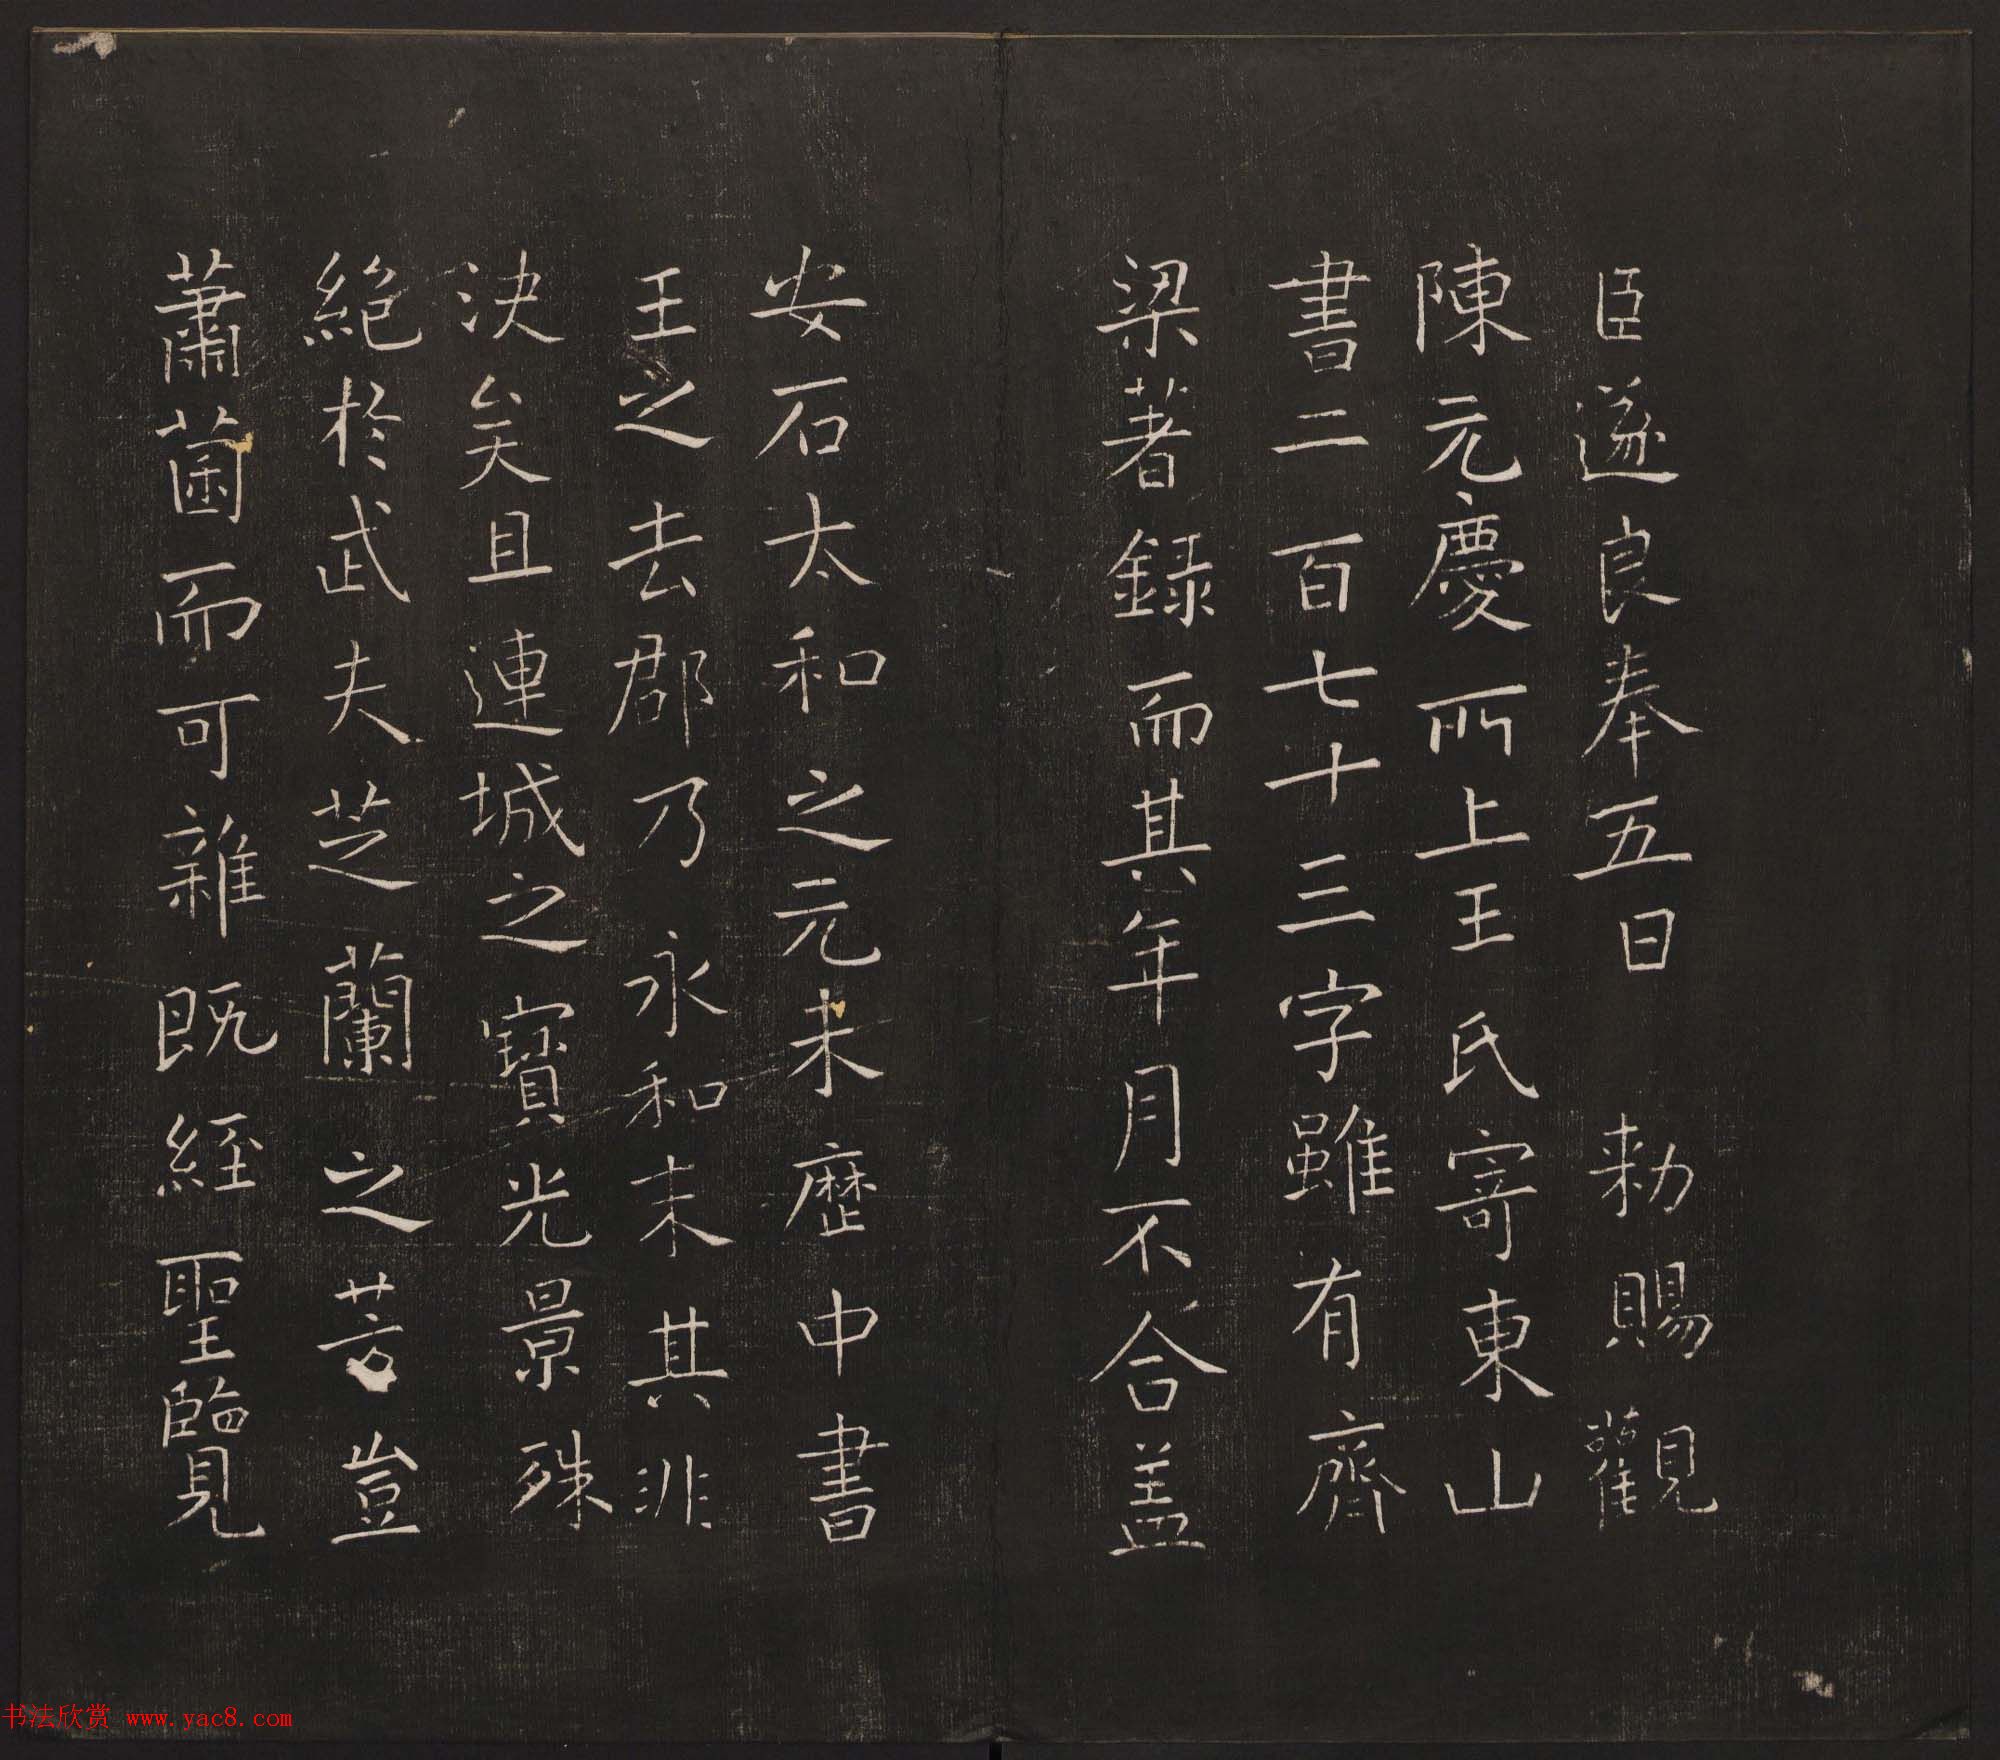 臣遂良奉五日 勅賜觀
陳元慶所上王氏寄東山
書二百七十三字雖有齊
梁著録而其年月不合盖
安石太和之元未歷中書
王之去郡乃永和末其非
決矣且連城之寶光景殊
絶於武夫芝蘭之芳豈
蕭茵而可雜既經聖覽
书法欣赏 www.yac8.com